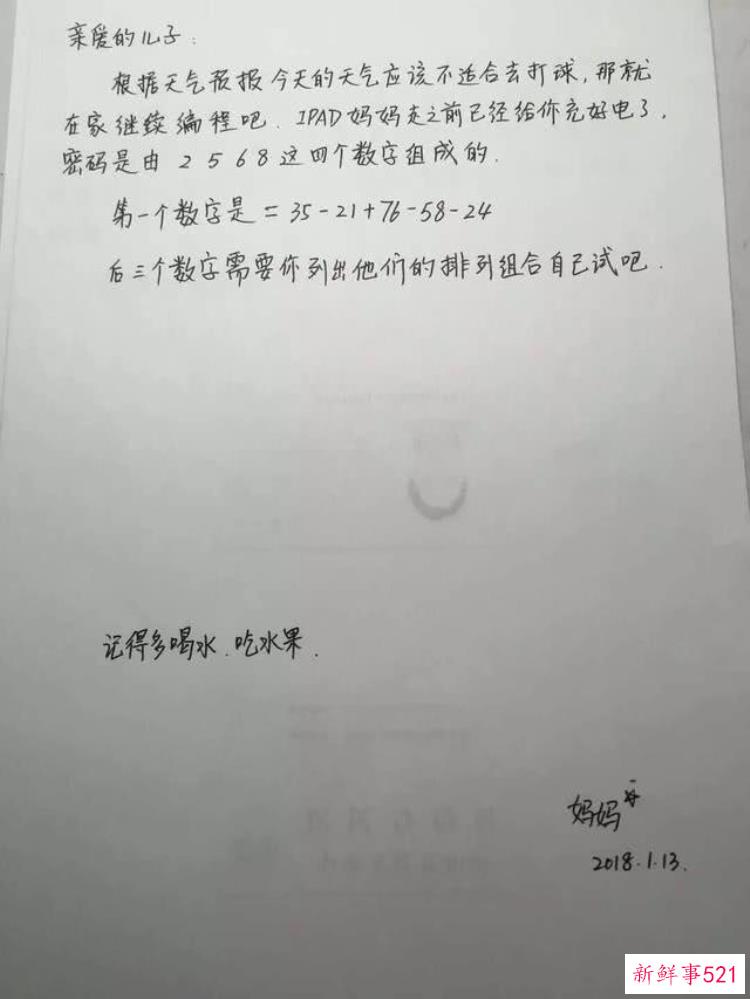 亲爱的儿子：
根据天气预报今天的天气应该不适合去打球，那就
在家继续编程吧．IPAD妈妈走之前已经给你充好电了，
密码是由 2 5 6 8 这四个数字组成的．
第一个数字是 = 35-21+76-58-24
后三个数字需要你列出他们的排列组合自己试吧．
记得多喝水．吃水果．
妈妈
2018.1.13.
新鲜事521